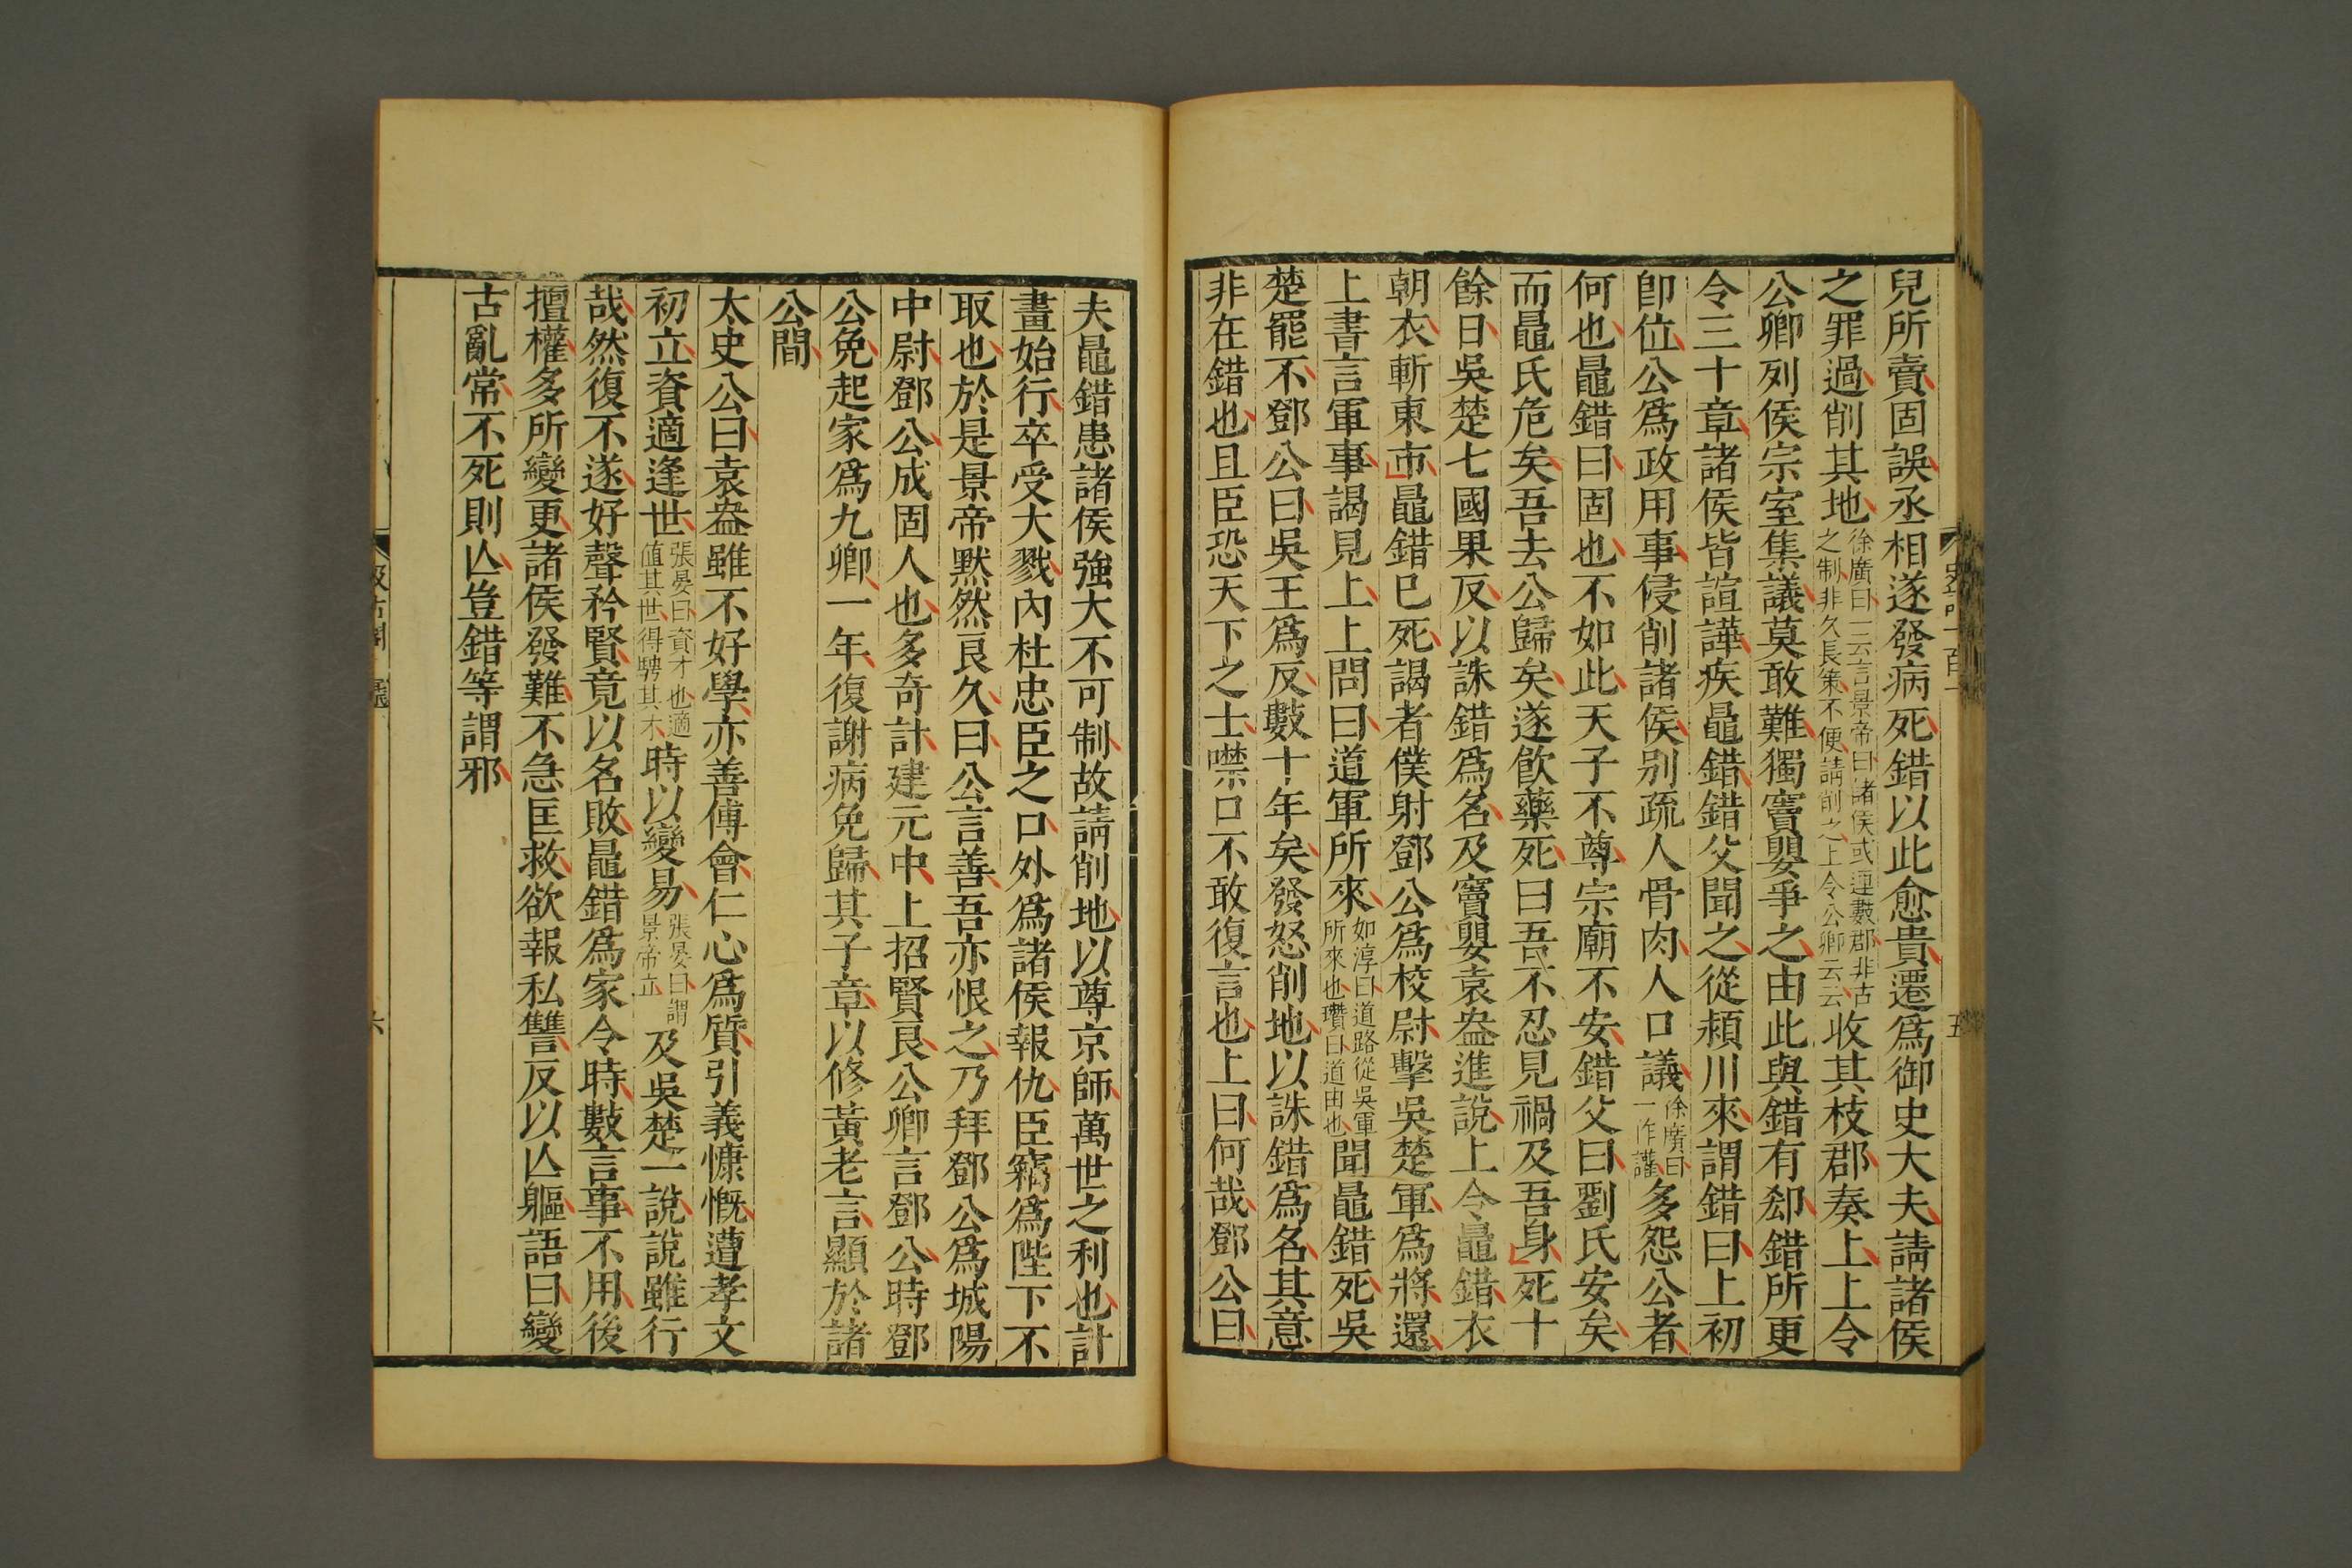 兒所賣固誤丞相遂發病死錯以此愈貴遷爲御史大夫請諸侯
之罪過削其地徐廣曰一云言景帝曰諸侯或連數郡非古之制非久長策不便請削之上令公卿云云收其枝郡奏上上令
公卿列侯宗室集議莫敢難獨竇嬰爭之由此與錯有郄錯所更
令三十章諸侯皆諠譁疾鼂錯錯父聞之從潁川來謂錯曰上初
卽位公爲政用事侵削諸侯別疏人骨肉人口議徐廣曰一作讙多怨公者
何也鼂錯曰固也不如此天子不尊宗廟不安錯父曰劉氏安矣
而鼂氏危矣吾去公歸矣遂飮藥死曰吾不忍見禍及吾身死十
餘日吳楚七國果反以誅錯爲名及竇嬰袁盎進說上令鼂錯衣
朝衣斬東市鼂錯已死謁者僕射鄧公爲校尉擊吳楚軍爲將還
上書言軍事謁見上上問曰道軍所來如淳曰道路從吳軍所來也瓚曰道由也聞鼂錯死吳
楚罷不鄧公曰吳王爲反數十年矣發怒削地以誅錯爲名其意
非在錯也且臣恐天下之士噤口不敢復言也上曰何哉鄧公曰
夫鼂錯患諸侯強大不可制故請削地以尊京師萬世之利也計
畫始行卒受大戮內杜忠臣之口外爲諸侯報仇臣竊爲陛下不
取也於是景帝默然良久曰公言善吾亦恨之乃拜鄧公爲城陽
中尉鄧公成固人也多奇計建元中上招賢良公卿言鄧公時鄧
公免起家爲九卿一年復謝病免歸其子章以修黃老言顯於諸
公間
太史公曰袁盎雖不好學亦善傅會仁心爲質引義慷慨遭孝文
初立資適逢世張晏曰資才也適值其世得騁其才時以變易張晏曰謂景帝立及吳楚一說說雖行
哉然復不遂好聲矜賢竟以名敗鼂錯爲家令時數言事不用後
擅權多所變更諸侯發難不急匡救欲報私讐反以亾軀語曰變
古亂常不死則亾豈錯等謂邪